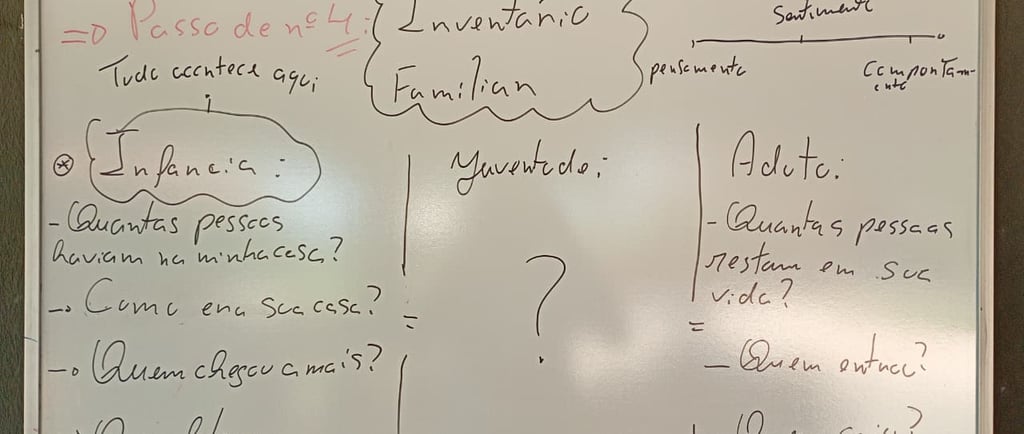 => Passo de nº 4:
Inventário
Familiar
Sentimento
pensamento
Comportam-
ento
Tudo acontece aqui
* Infancia:
- Quantas pessoas
haviam na minha casa?
-> Como era sua casa?
-> Quem chegou a mais?
Juventude:
?
Adulto:
- Quantas pessoas
restam em sua
vida?
=
=
- Quem entrou?